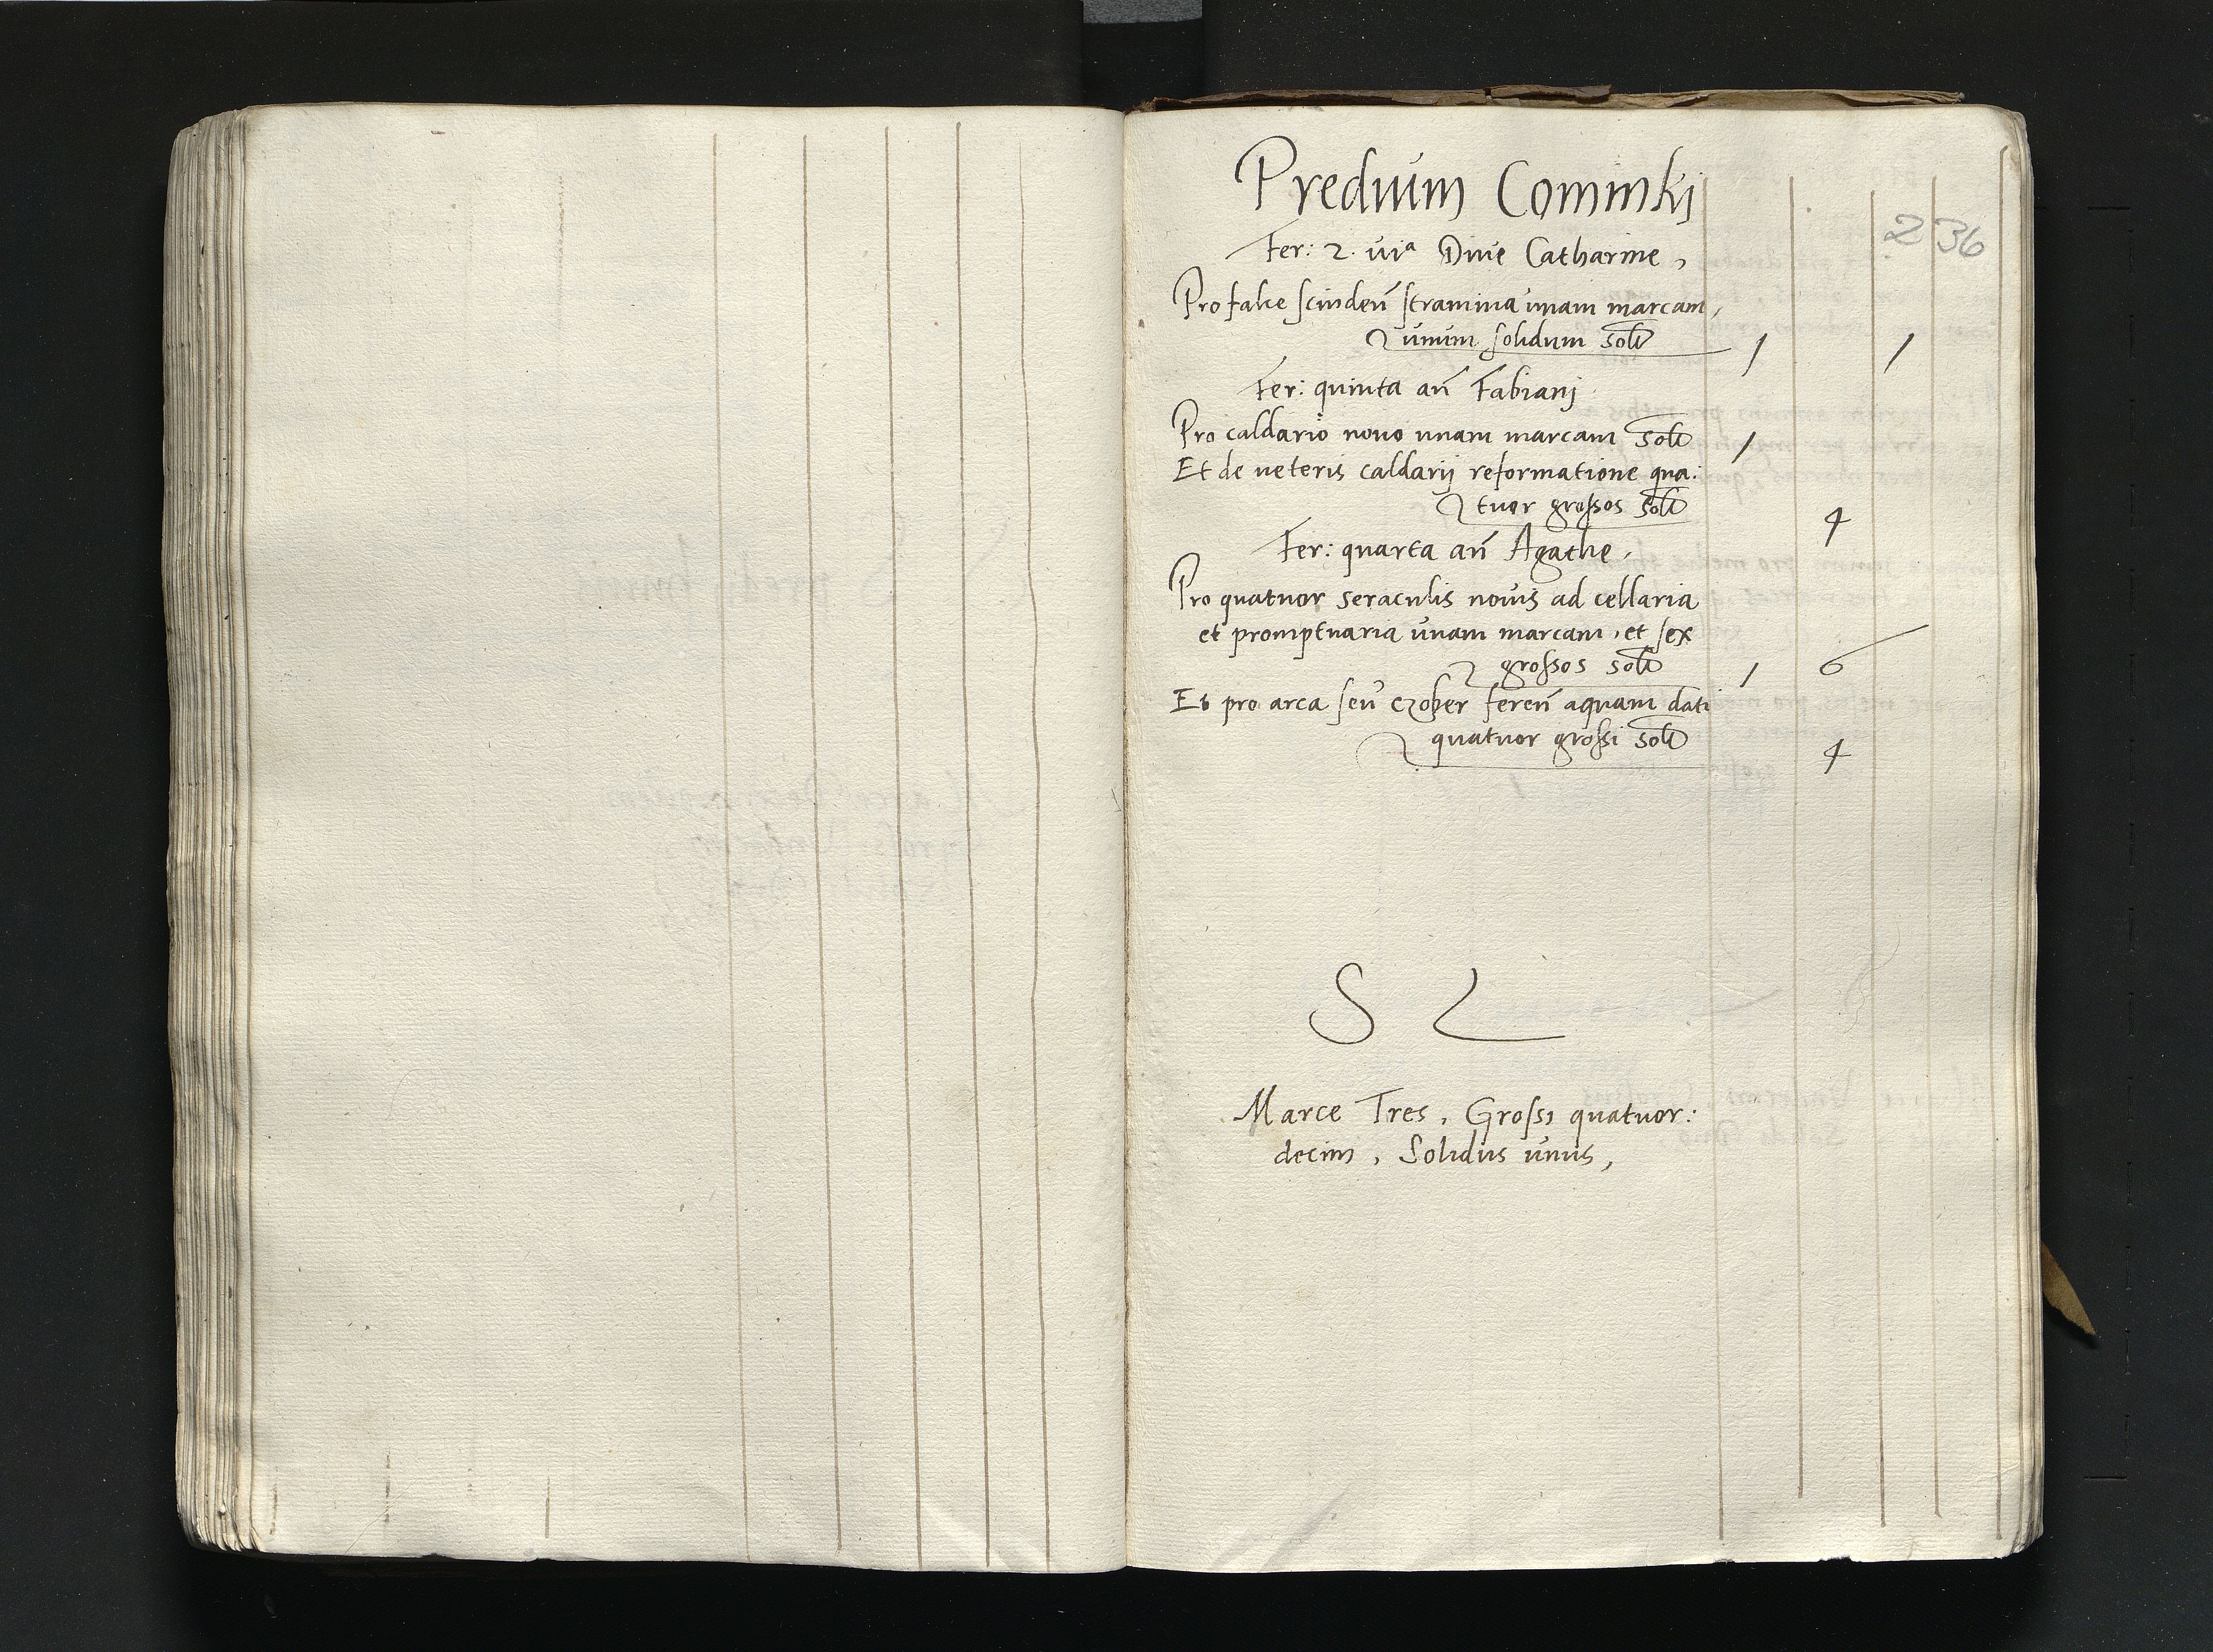 Predium Cominkj
236
Fer: 2. via Dive Catharine,
Pro falce scinden stramina unam marcam,
unum solidum solt 1 1
Fer: quinta an Fabianj
Pro caldario novo unam marcam solt 1
Et de veteris caldarij reformatione qua:
tuor grossos solt 4
Fer: quarta an Agathe,
Pro quatuor seraculis novis ad cellaria
et promptuaria unam marcam, et sex
grossos solt 1 6
Et pro arca seu czober feren aquam dati
quatuor grossi solt 4
S
Marce Tres, Grossi quatuor:
decim, Solidus unus,